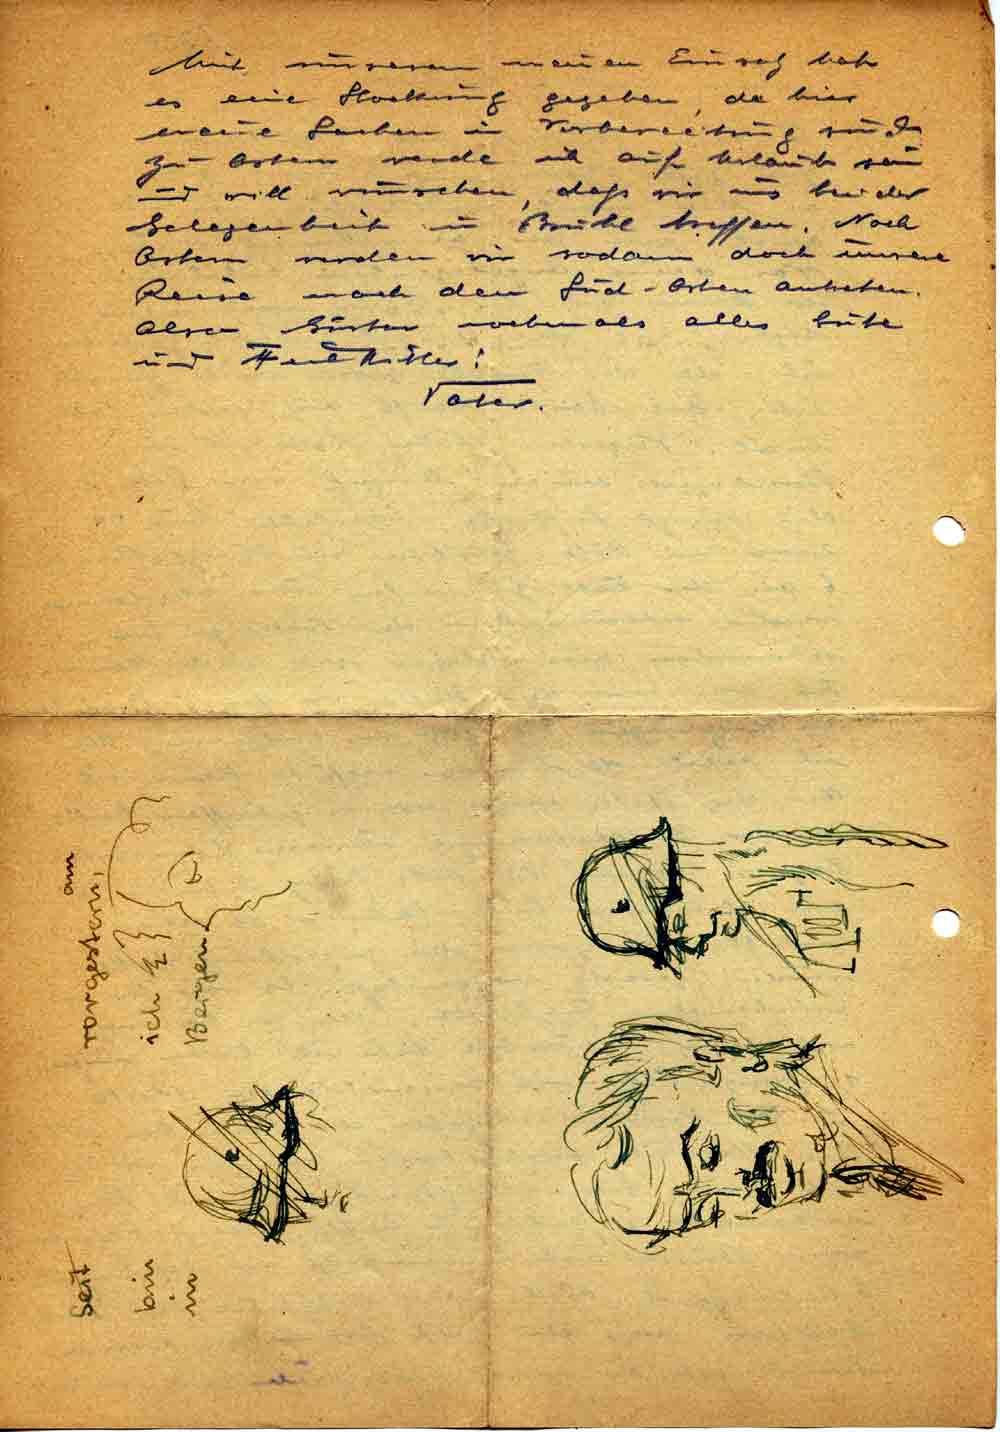 Mit unserem neuen Einsatz hat
es eine Stockung gegeben, da hier
neue Sachen in Vorbereitung sind.
Zu Ostern werde ich auf Urlaub sein
und will wünschen, dass wir uns bei der
Gelegenheit in Brühl treffen. Nach
Ostern werden wir sodann doch unsere
Reise nach dem Süd-Osten antreten.
Also nochmals alles Gute
und Heil Hitler!
Vater.
Seit vorgestern, am
bin ich
in Bergen